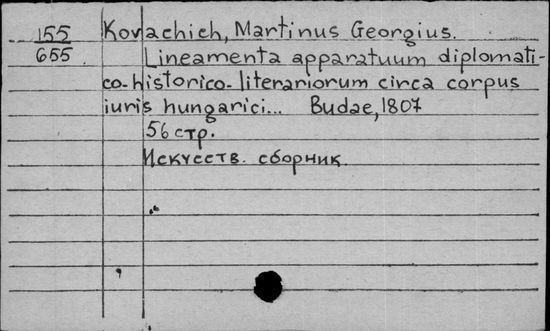 155 Kovachich, Martinus Georgius.
655 Lineamenta apparatuum diplomati-
co-historico-literariorum circa corpus
iuris hungarici... Budae, 1807
56 стр.
Искусств. сборник